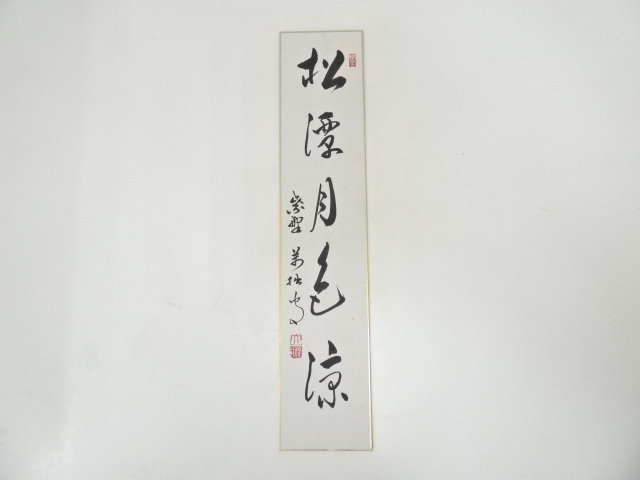 松潭月色涼
紫野